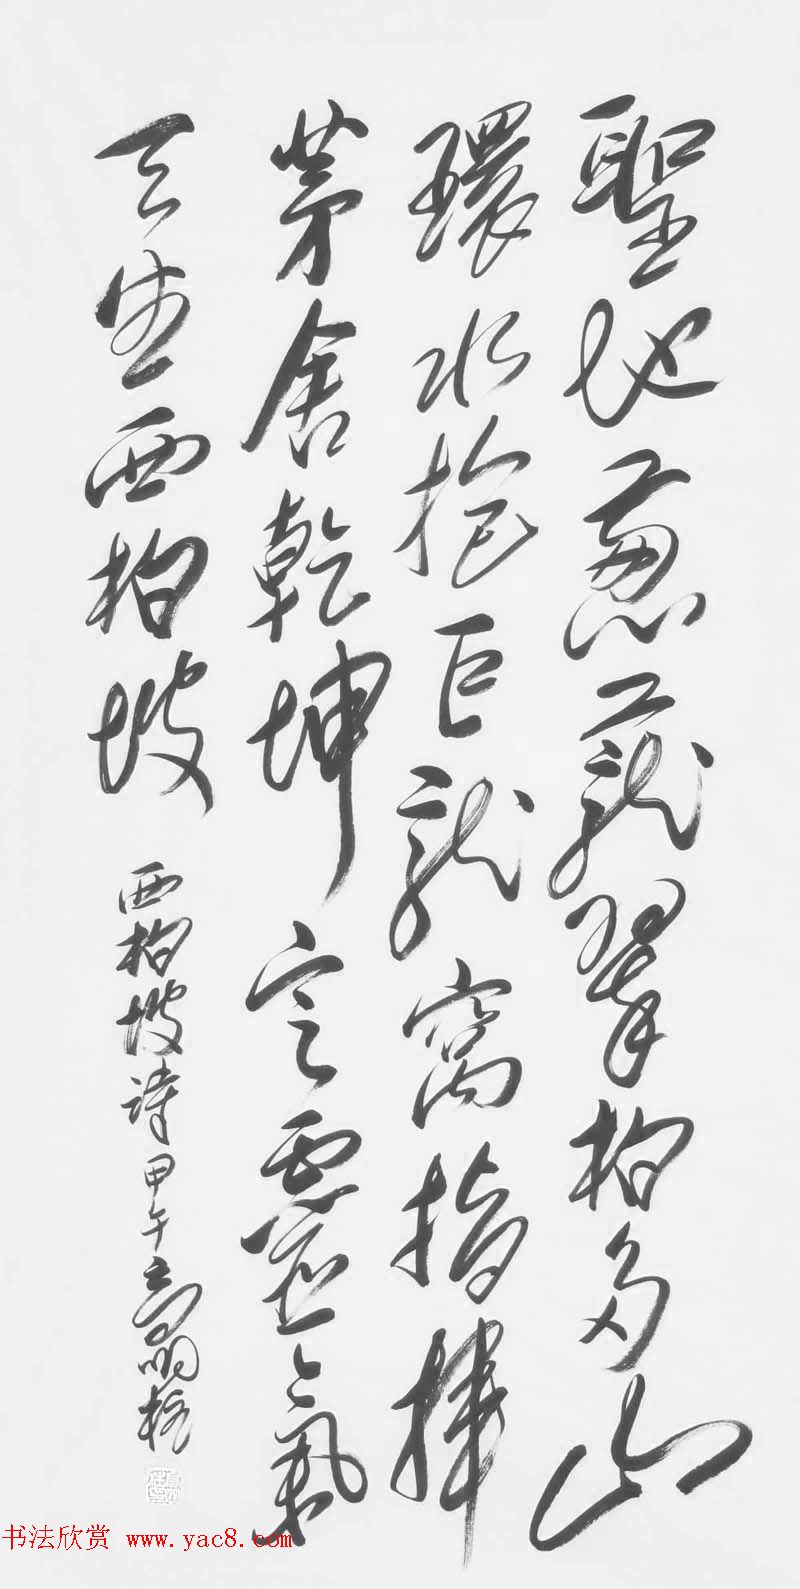 聖地蔥蘢翠柏多山
環水抱巨龍窩指揮
茅舍乾坤定靈氣
天生西柏坡
西柏坡詩甲午高明
书法欣赏 www.yac8.com